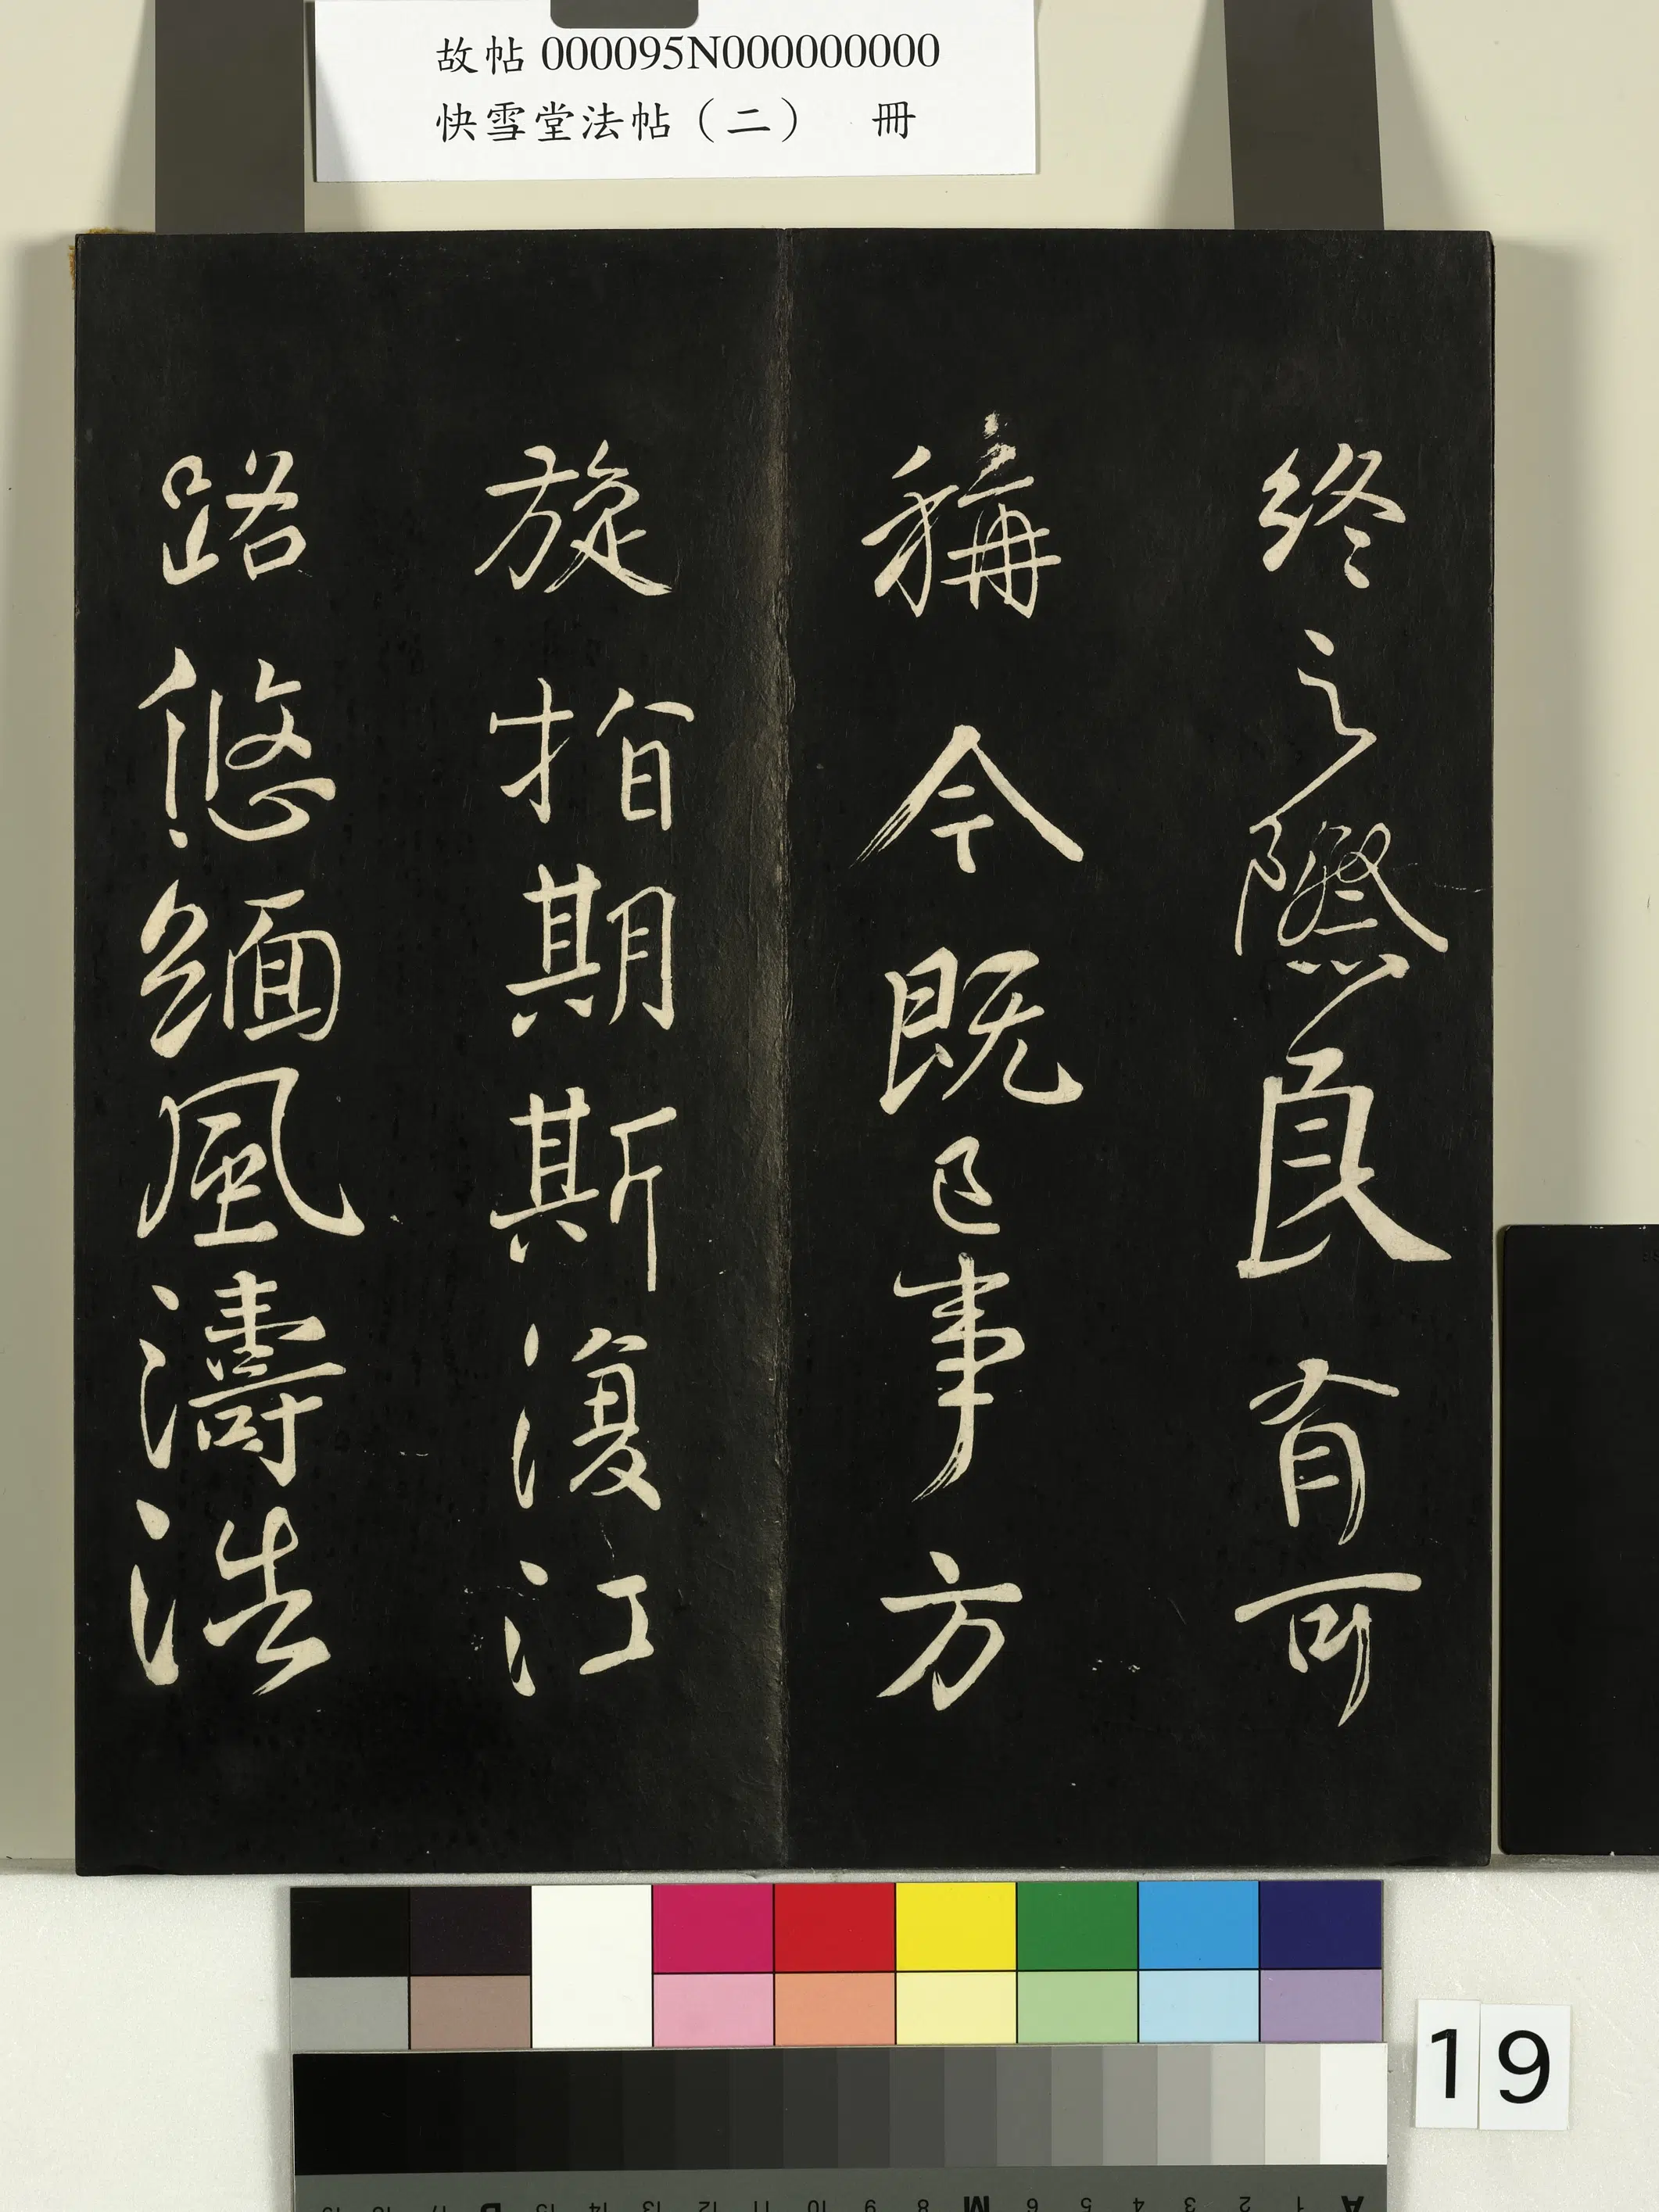 故帖 000095N000000000
快雪堂法帖（二）　冊
終之際良有可
稱今既已事方
旋指期斯復江
路悠緬風濤浩
19
A 1 2 3 4 5 6 M 8 9 10 11 12 13 14 15 B 17 18 19